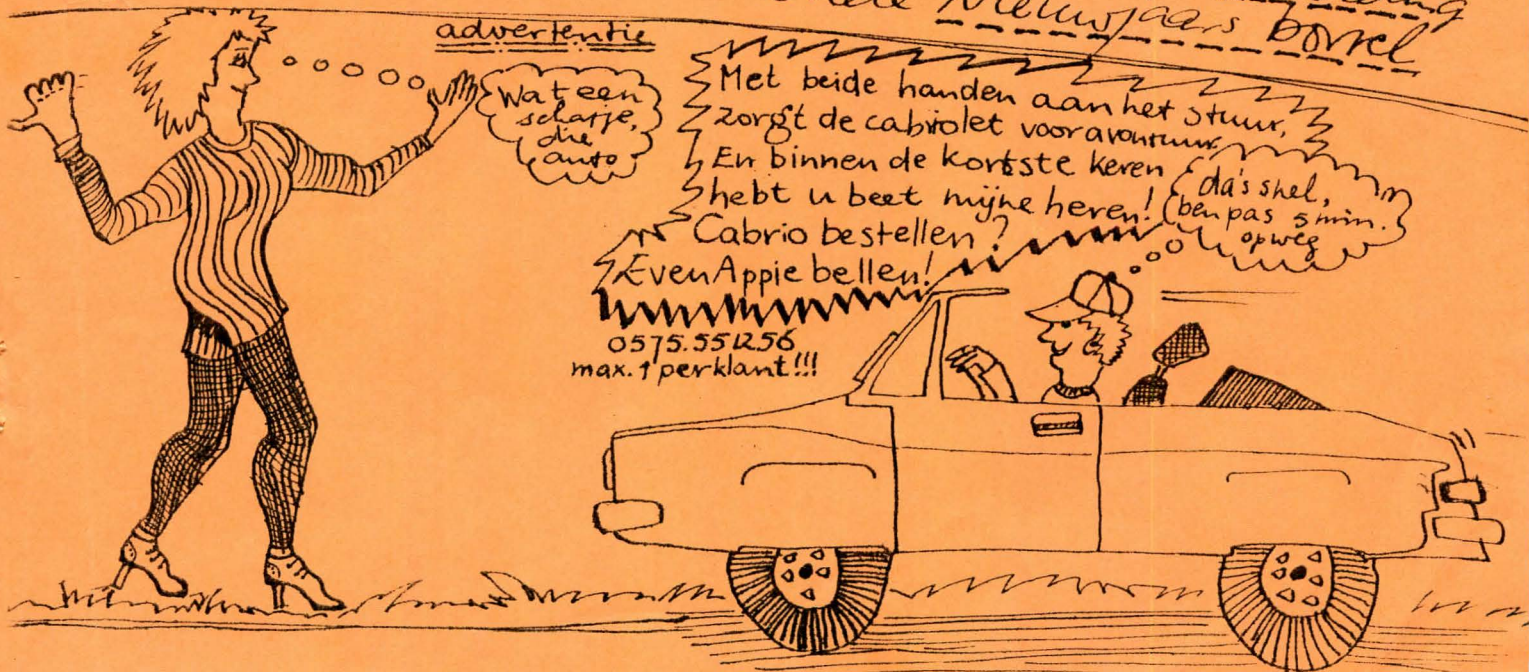 Nieuwjaars borrel
advertentie
Wat een
schatje,
die
auto
Met beide handen aan het stuur,
zorgt de cabriolet voor avontuur.
En binnen de kortste keren
hebt u beet mijne heren!
Cabrio bestellen?
Even Appie bellen!
da's snel,
ben pas 5 min.
op weg
0575.551256
max. 1 per klant!!!